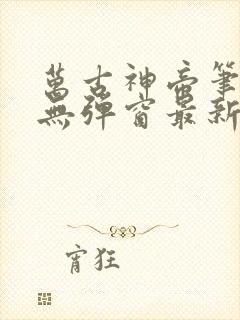 萬古神帝筆
無彈窗最新
宵狂